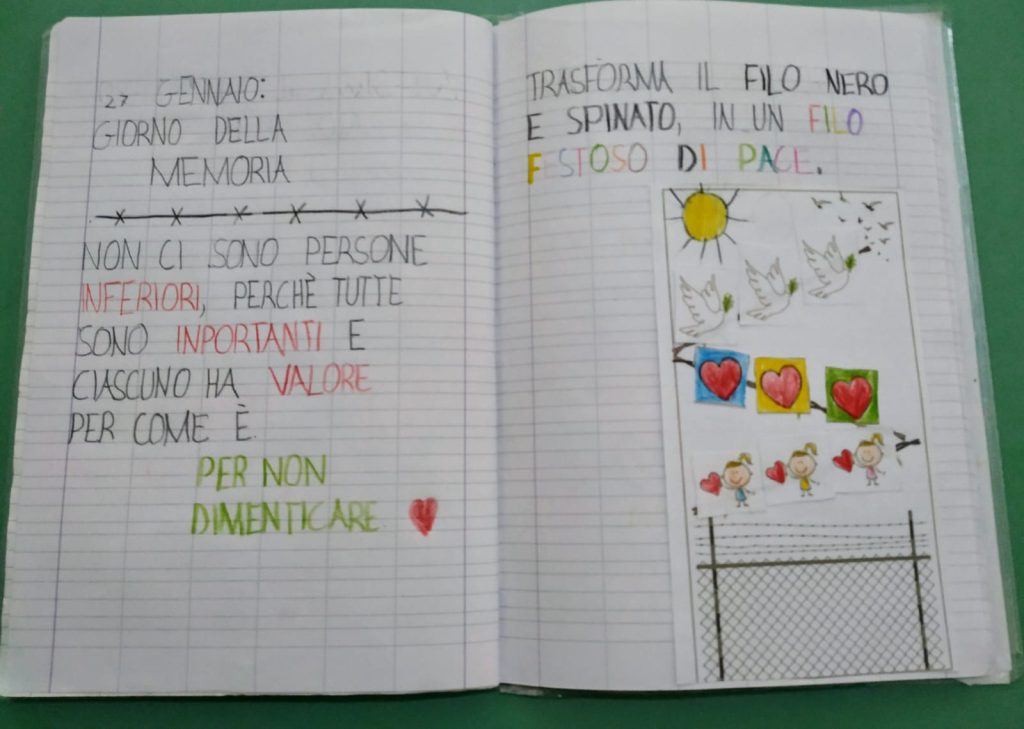 27 GENNAIO:
GIORNO DELLA
MEMORIA
NON CI SONO PERSONE
INFERIORI, PERCHÈ TUTTE
SONO INPORTANTI E
CIASCUNO HA VALORE
PER COME È
PER NON
DIMENTICARE
TRASFORMA IL FILO NERO
E SPINATO, IN UN FILO
FESTOSO DI PACE.